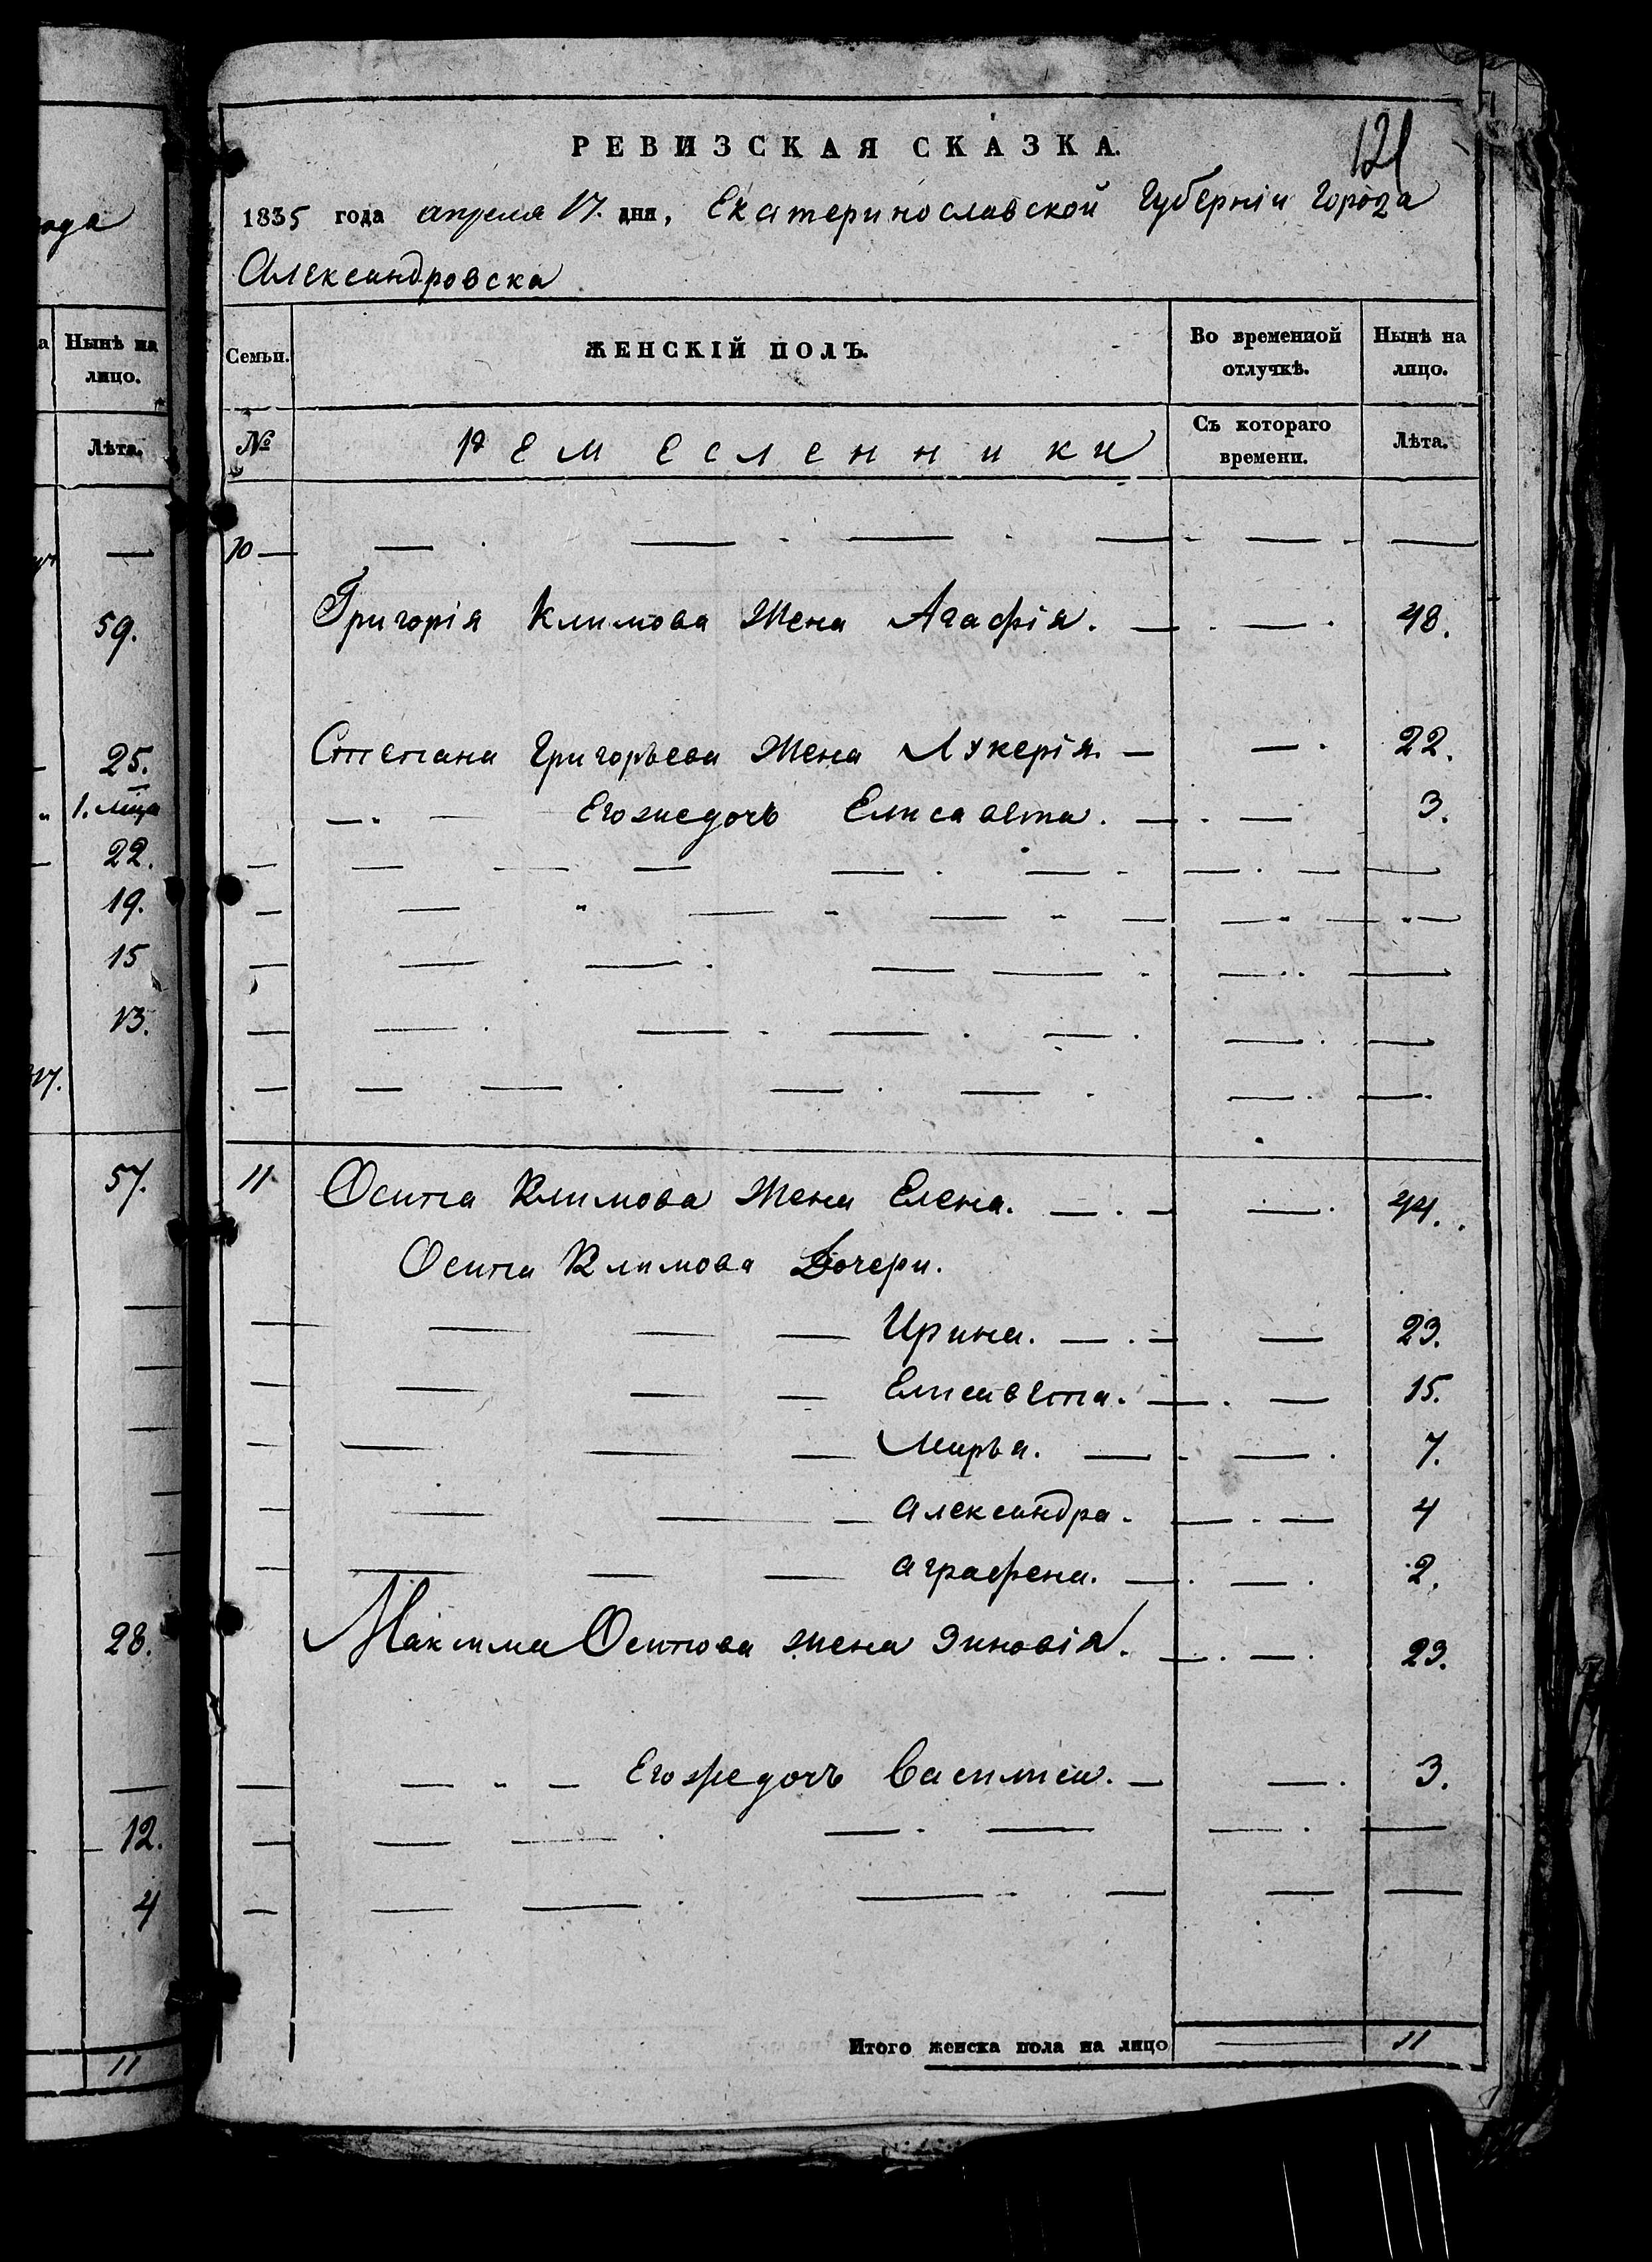 ода
Нынѣ на
лицо.
Лѣта.
59.
25.
1. мца
22.
19.
15
13.
57.
28.
12.
4
11
121
РЕВИЗСКАЯ СКАЗКА.
1835 года апреля 17. дня, Екатеринославской Губерніи Города
Александровска
Семьи. ЖЕНСКІЙ ПОЛЪ. Во временной отлучкѣ. Нынѣ на лицо.
№ Ремесленники Съ котораго времени. Лѣта.
10
Григорія Климова Жена Агафія. 48.
Степана Григорьева Жена Лукерія. 22.
Егожедочь Елисавета. 3.
11 Осипа Климова Жена Елена. 44.
Осипа Климова Дочери.
Ирина. 23.
Елисавета. 15.
Марья. 7.
Александра. 4
Аграфена. 2.
Максима Осипова жена Зиновія. 23.
Егожедочь Василиса. 3.
Итого женска пола на лицо 11